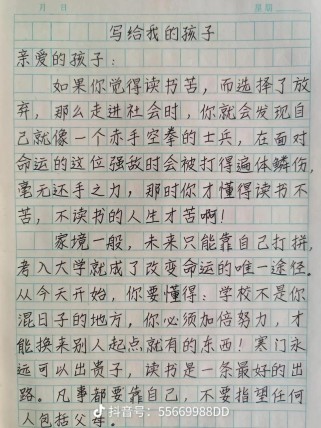 月 日 星期
写给我的孩子
亲爱的孩子：
如果你觉得读书苦，而选择了放
弃，那么走进社会时，你就会发现自
己就像一个赤手空拳的士兵，在面对
命运的这位强敌时会被打得遍体鳞伤，
毫无还手之力，那时你才懂得读书不
苦，不读书的人生才苦啊！
家境一般，未来只能靠自己打拼，
考入大学就成了改变命运的唯一途径。
从今天开始，你要懂得：学校不是你
混日子的地方，你必须加倍努力，才
能换来别人起点就有的东西！寒门永
远可以出贵子，读书是一条最好的出
路。凡事都要靠自己，不要指望任何
人包括父母。
抖音号：55669988DD